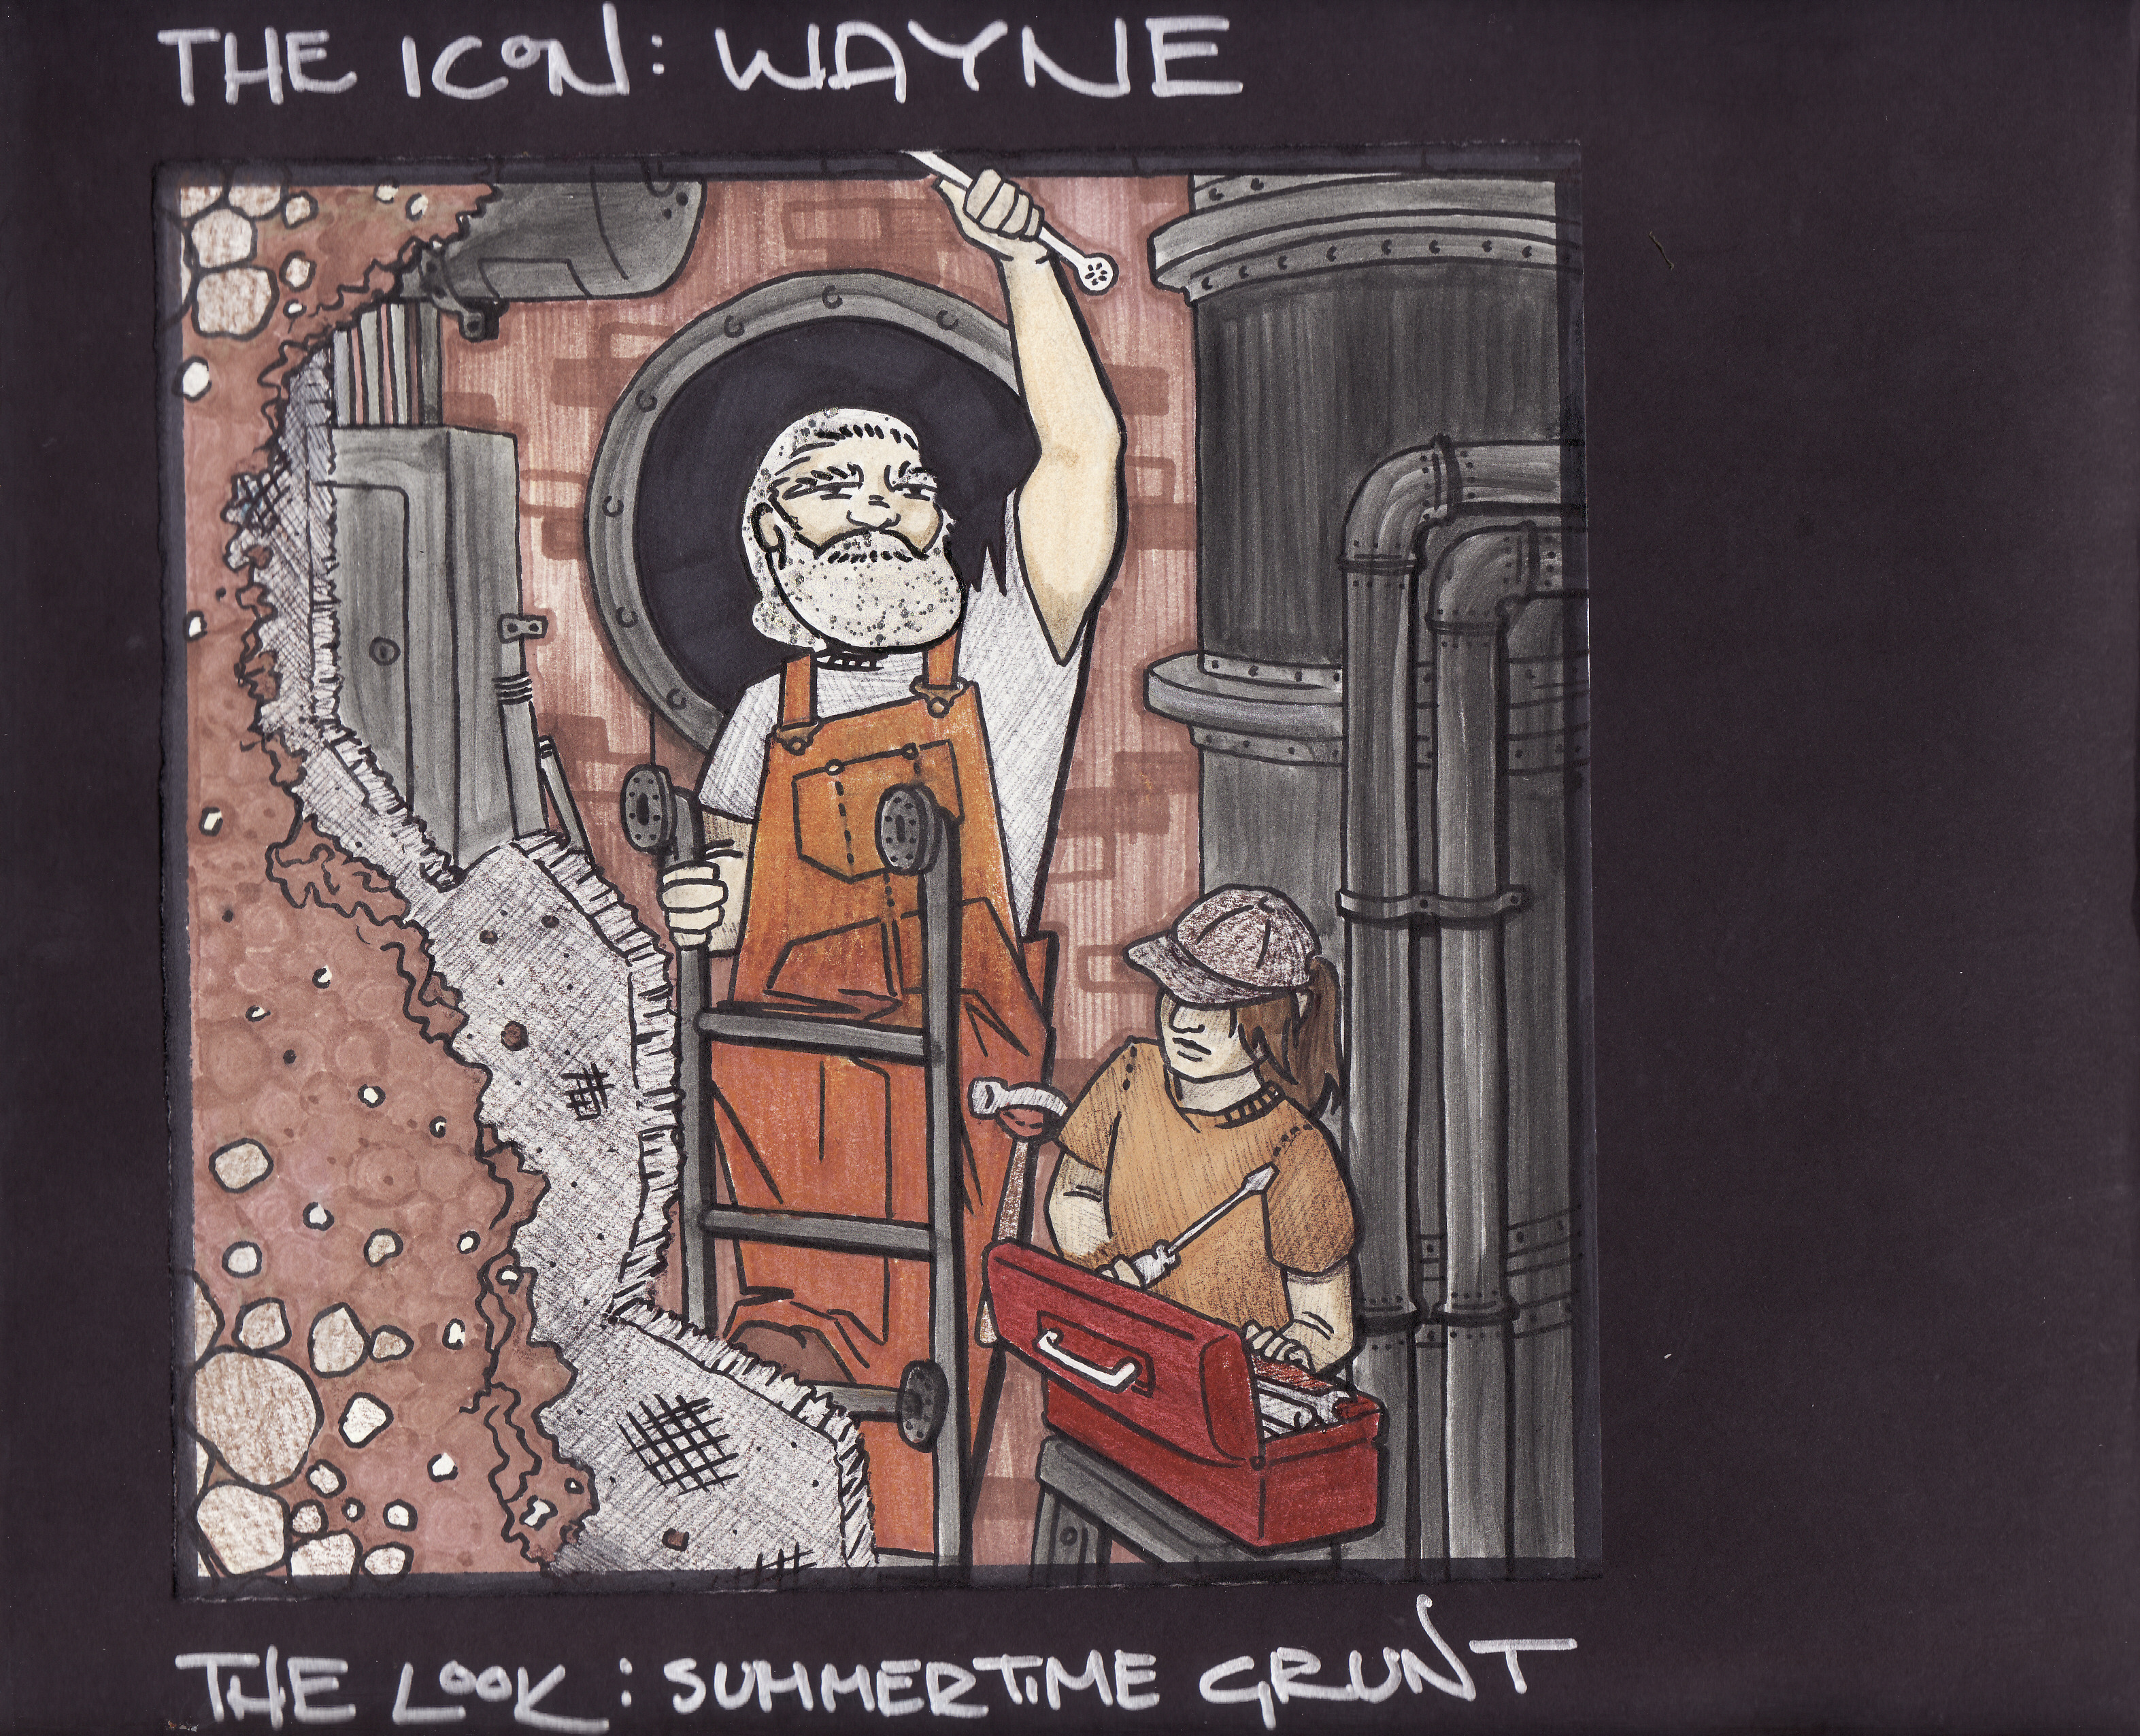 THE ICON: WAYNE
THE LOOK: SUMMERTIME GRUNT